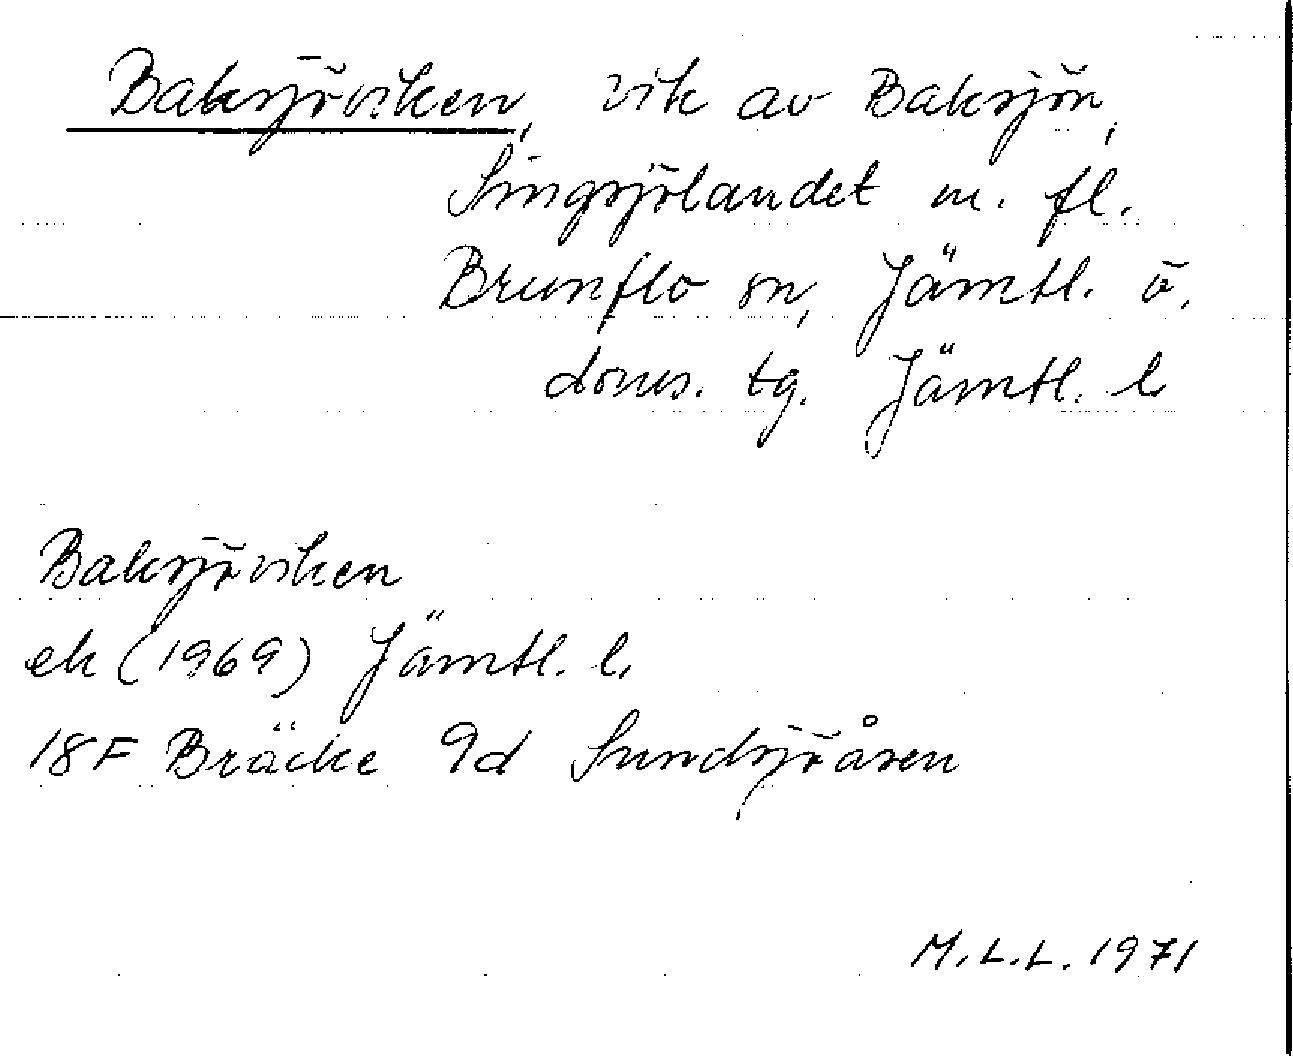 Baksjöviken, vik av Baksjön,
Singsjölandet m. fl.
Brunflo sn, Jämtl. ö.
doms. tg. Jämtl. l.
Baksjöviken
ek (1969) Jämtl. l.
18F Bräcke 9d Sundsjöåsen
M.L.L. 1971